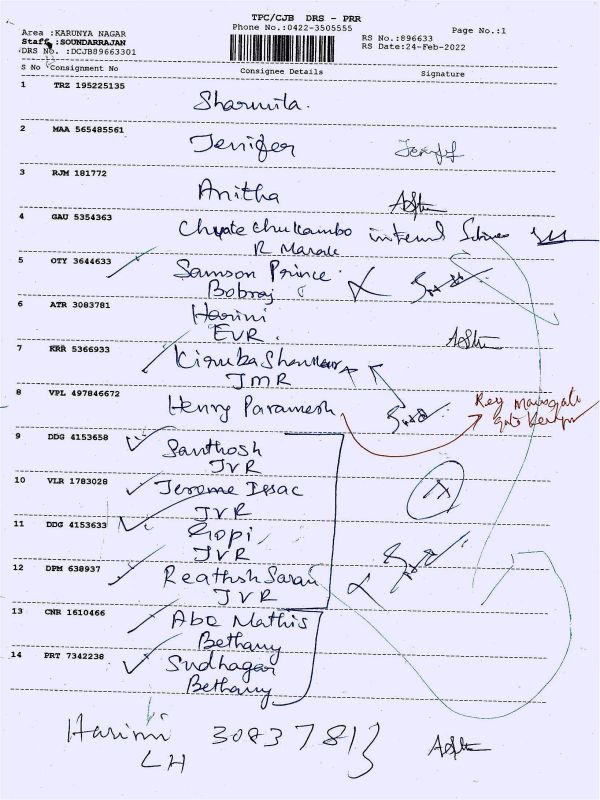 TPC/CJB DRS - PRR
Phone No.:0422-3505555
Page No.:1
Area :KARUNYA NAGAR
Staff :SOUNDARRAJAN
DRS No. :DCJB89663301
RS No.:896633
RS Date:24-Feb-2022
S No Consignment No Consignee Details Signature
1 TRZ 195225135
Sharmila.
2 MAA 565485561
Jenifer
3 RJM 181772
Anitha
4 GAU 5354363
R Marak
5 OTY 3644633
Samson Prince
Bobraj
6 ATR 3083781
Harini
EVR.
7 KRR 5366933
Kiruba Shankar
JMR
8 VPL 497846672
Henry Paramesh
9 DDG 4153658
Santhosh
JVR
10 VLR 1783028
Jerome Issac
JVR
11 DDG 4153633
Gopi,
JVR
12 DPM 638937
JVR
13 CNR 1610466
Abo Mathis
Bethany
14 PRT 7342238
Sudhagar
Bethany
Harini 3083781
LH